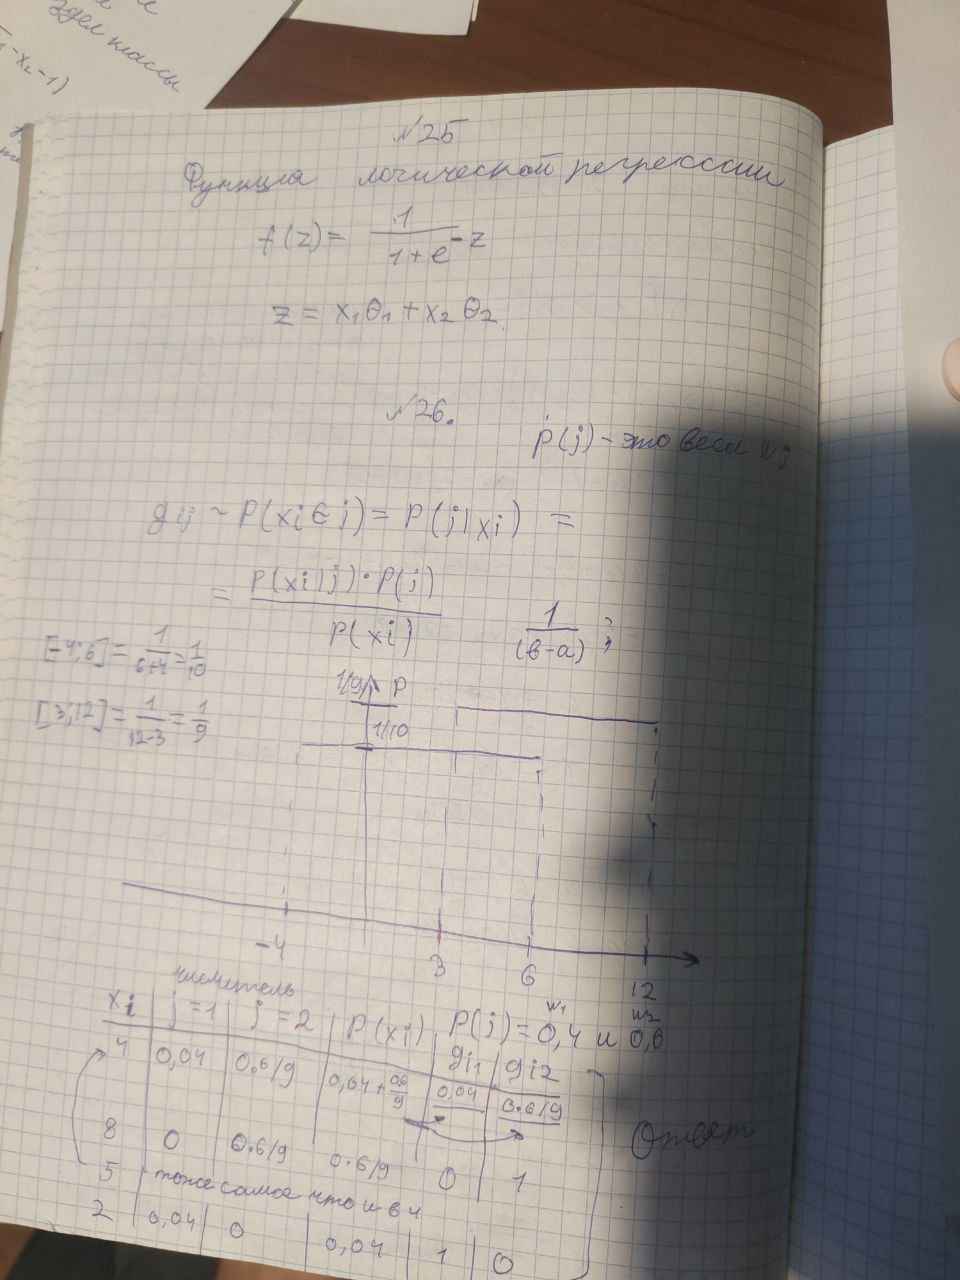 здел классы
-x₂-1)
№25
Функция логической регрессии
f(z) = 1 / (1+e^-z)
z = x₁θ₁ + x₂θ₂
№26.
p(j) - это веса wj
gij ~ P(xi ∈ j) = P(j|xi) =
= P(xi|j)·P(j) / P(xi)
1/(b-a) ;
[-4;6] = 1/(6+4) = 1/10
[3;12] = 1/(12-3) = 1/9
1/9 P
1/10
-4 3 6 12
числитель
w₁ w₂
xi | j=1 | j=2 | P(xi) P(j)=0,4 и 0,6
gi1 | gi2
4 | 0,04 | 0.6/9 | 0,04+0,6/9 | 0,04 | 0.6/9
Ответ
8 | 0 | 0.6/9 | 0.6/9 | 0 | 1
5 | тоже само что и в 4
2 | 0,04 | 0 | 0,04 | 1 | 0